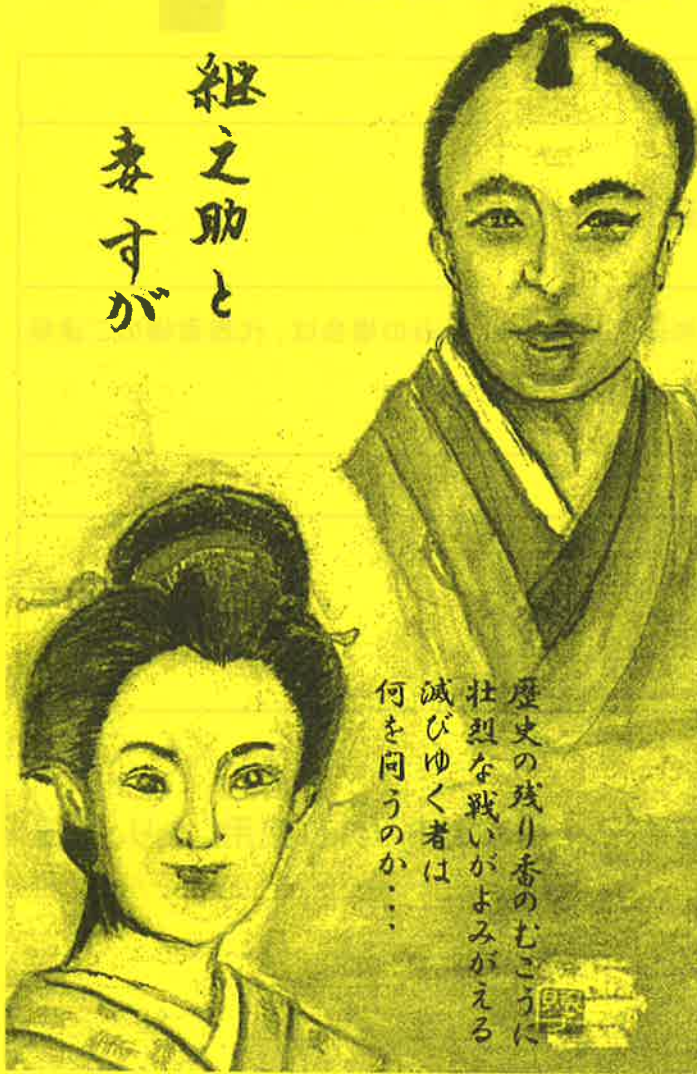 継之助と
妻すが
歴史の残り香のむこうに
壮烈な戦いがよみがえる
滅びゆく者は
何を問うのか・・・